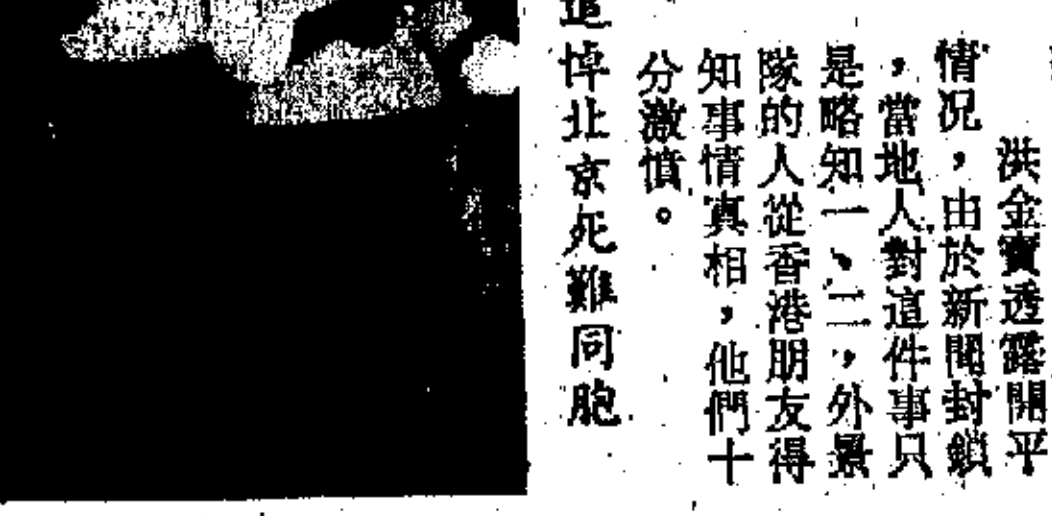 洪金寶透露開平
情况，由於新聞封鎖
，當地人對這件事只
是略知一、二，外景
隊的人從香港朋友得
知事情真相，他們十
分激憤。
追悼北京死難同胞